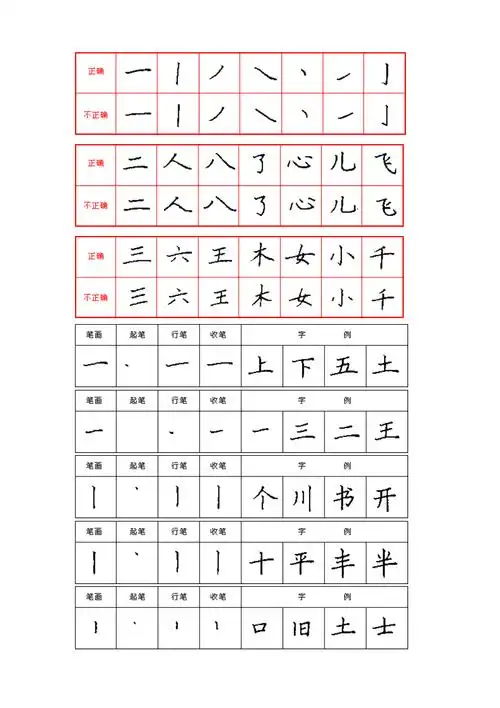 正确 一 丨 丿 ㇏ 丶 ㇀ 亅
不正确 一 丨 丿 ㇏ 丶 ㇀ 亅
正确 二 人 八 了 心 儿 飞
不正确 二 人 八 了 心 儿 飞
正确 三 六 王 木 女 小 千
不正确 三 六 王 木 女 小 千
笔画 起笔 行笔 收笔 字 例
一 丶 一 一 上 下 五 土
笔画 起笔 行笔 收笔 字 例
一 丶 一 一 三 二 王
笔画 起笔 行笔 收笔 字 例
丨 丶 丨 丨 个 川 书 开
笔画 起笔 行笔 收笔 字 例
丨 丶 丨 丨 十 平 丰 半
笔画 起笔 行笔 收笔 字 例
丨 丶 丨 丨 口 旧 土 士